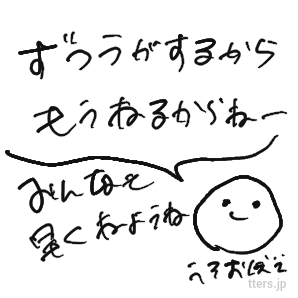 ずつうがするから
もうねるからねー
みんなも
早くねようね
うろおぼえ
tters.jp